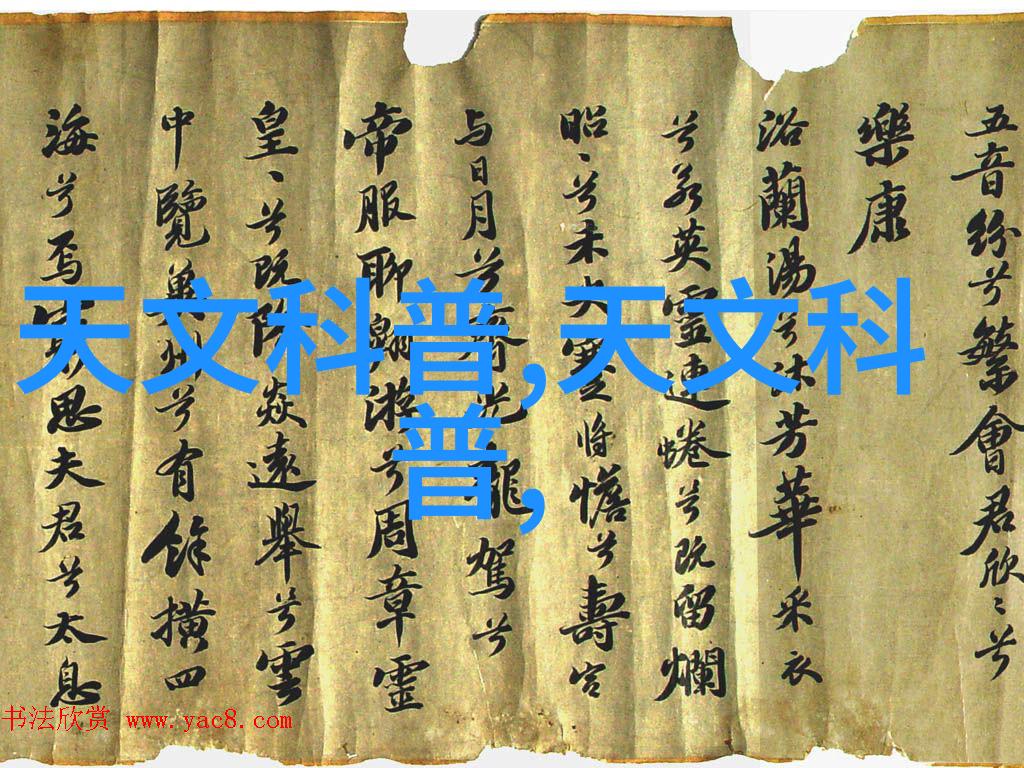 五音纷兮繁會君欣〻兮
樂康
浴蘭湯兮沐芳華采衣
兮若英靈連蜷兮既留爛
昭〻兮未央蹇将憺兮壽宫
与日月兮齊光龍駕兮
帝服聊翱游兮周章靈
皇〻兮既降猋遠舉兮雲
中覽兾州兮有餘橫四
海兮焉窮思夫君兮太息
天文科普,天文科
普,
书法欣赏 www.yac8.com